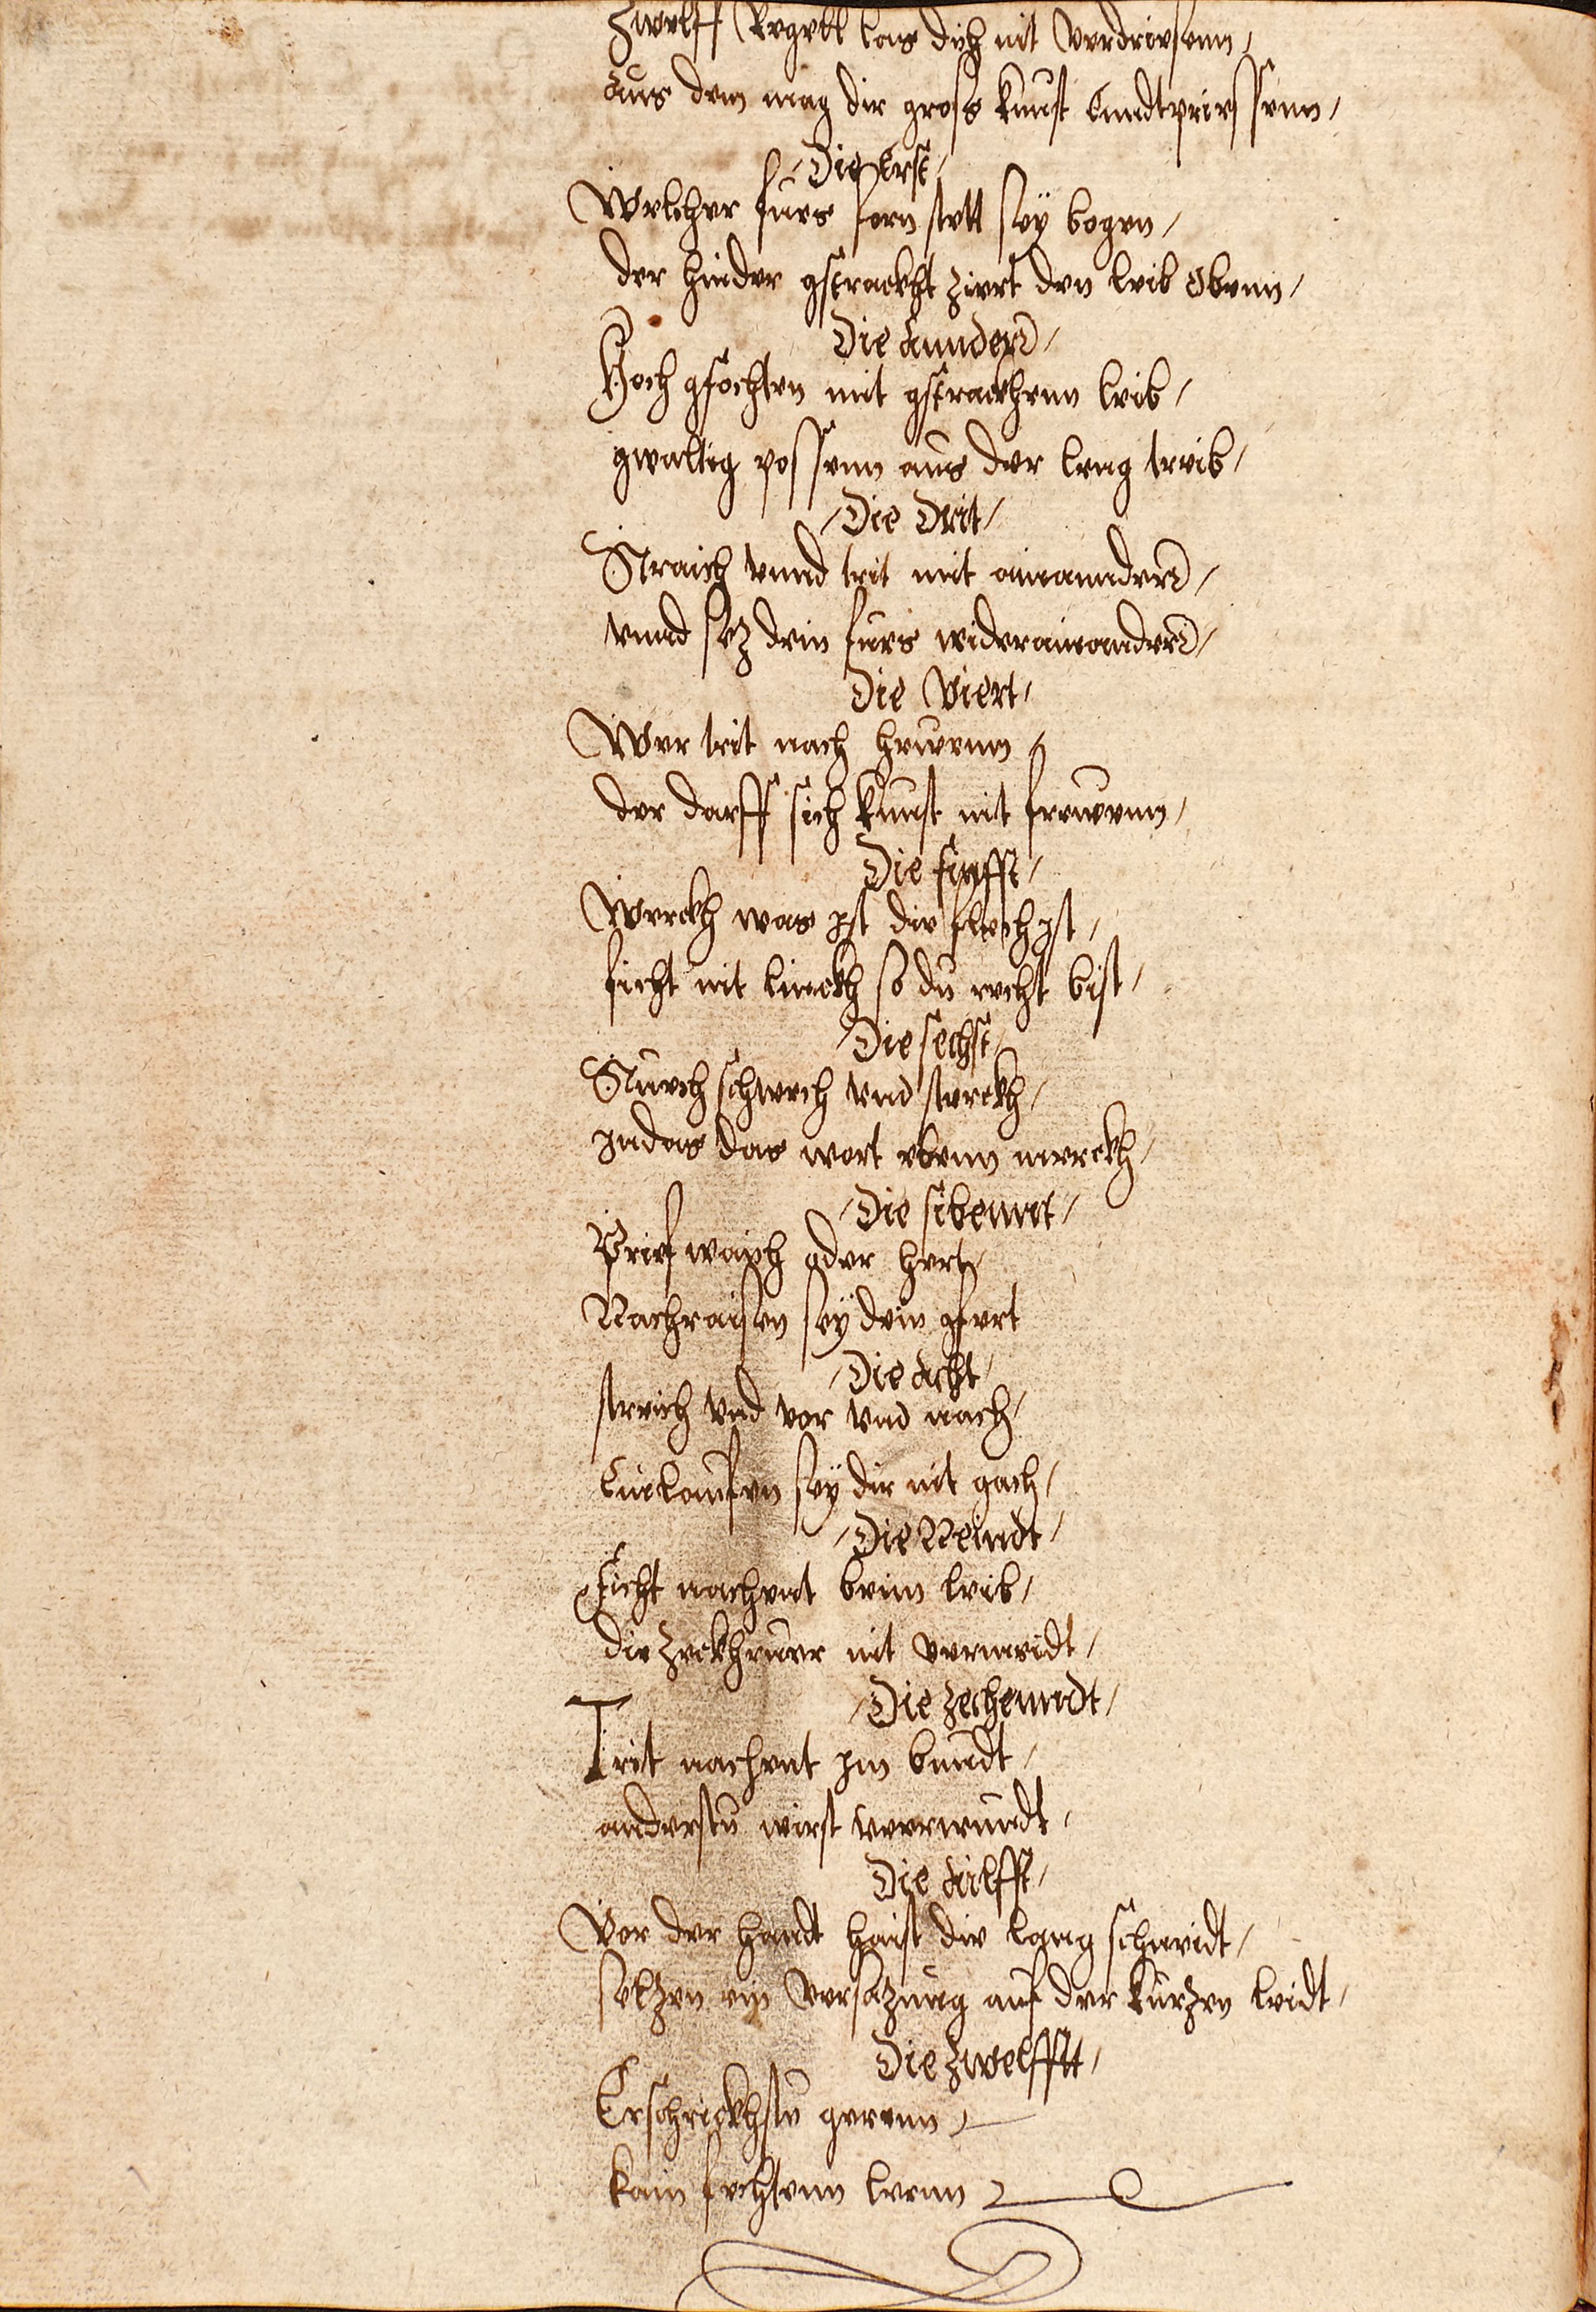 Zwelff Regell las dich nit Verdriesenn /
Aus dem mag dir gross kunst Endtpriessenn /
/ Die Erst /
Welcher fues forn stett sey bogen /
der hinder gstrackht ziert den leib Obenn /
Die Annder /
Hoch gfochten mit gstrackhenn leib /
gwaltig possenn aus der leng treib /
/ Die Drit /
Straich vnnd trit mit ainannder /
vnnd sez dein fues widerainannder /
Die Viert /
Wer trit nach hewenn /
der darff sich kunst nit frewenn /
Die finfft /
Merckh was ist die flech ist /
ficht nit linckh so du recht bist /
/ Die sechst /
Suech schwech vnd sterckh /
indas das wort ebenn merckh /
/ Die sibennt /
Prief waich oder hert /
Nachraisen sey dein gfert
/ Die Acht /
streich vnd vor vnd nach /
Einlaufen sey dir nit gach /
/ Die Neindt /
Ficht nachent beim leib /
die zeckhruer nit vermeidt /
/ Die Zechenndt /
Trit nachent im bundt /
anderstu wirst verwundt /
Die Ailfft /
Vor der handt haist die lang schneidt /
selzen ein Versazung auf der kurzen leidt /
Die Zwelfft /
Erschrickhstu gerenn /
kain fechtenn lernn